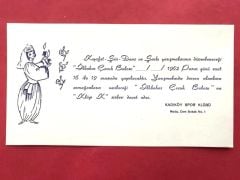 Kıyafet-Şiir-Dans ve Şarkı yarışmalarının düzenleneceği
"İlkbahar Çocuk Balosu" / / 1962 Pazar günü saat
16 ila 19 arasında yapılacaktır. Yarışmalarda derece alanlara
armağanların verileceği "İlkbahar Çocuk Balosu" na
"Klüp X." sizleri davet eder.
KADIKÖY SPOR KLÜBÜ
Moda, Cem Sokak No. 1